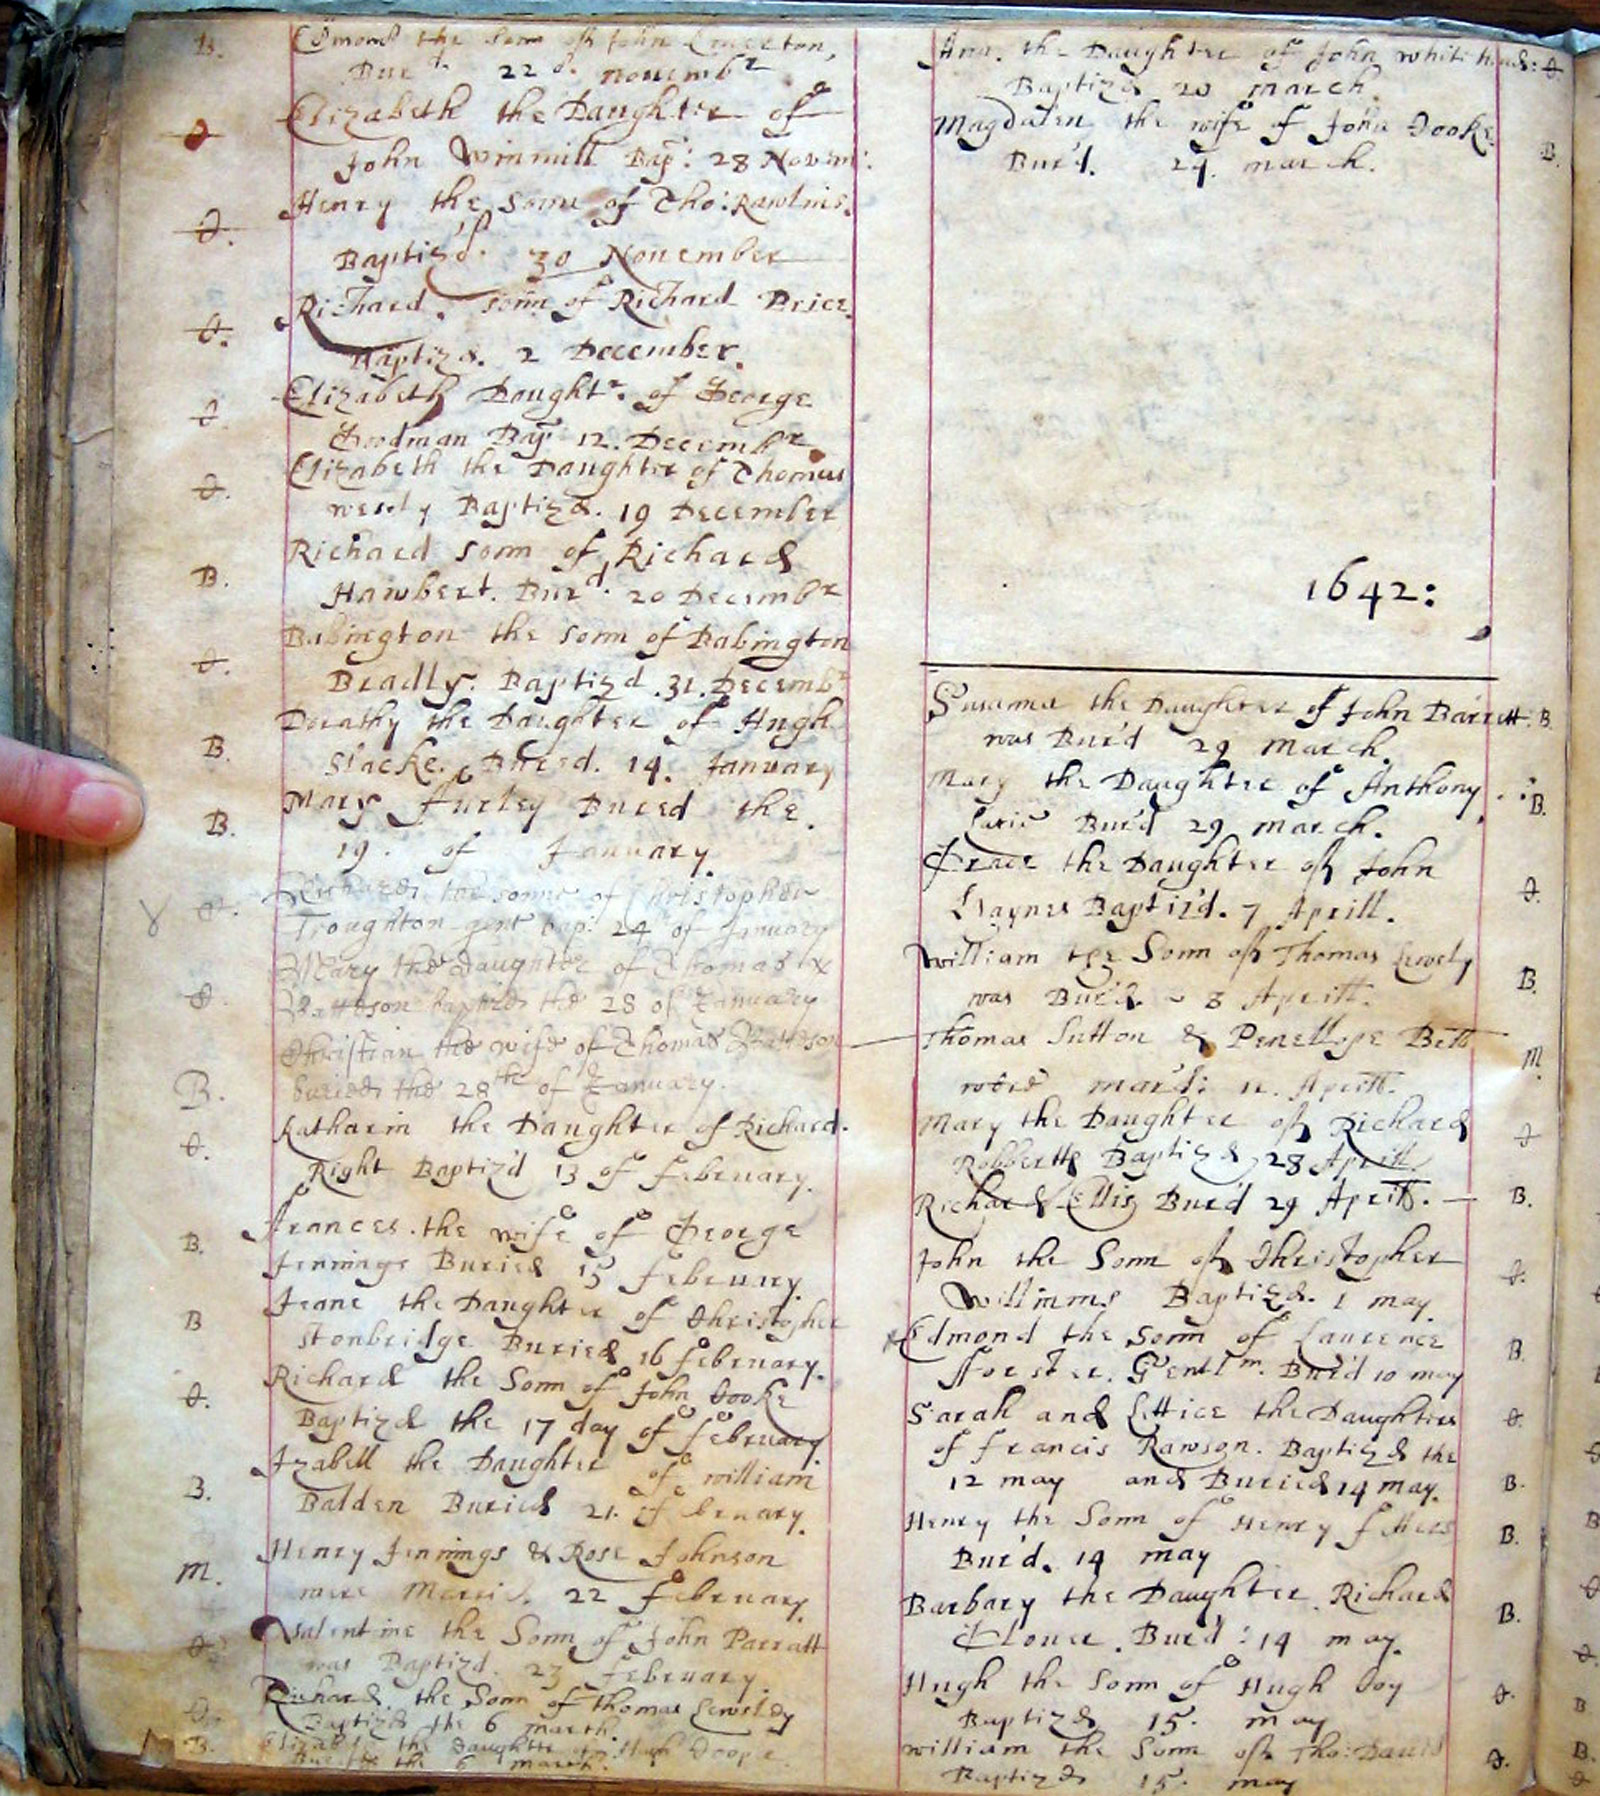 B. Edmond the Sonn of John
Bur:d. 22 d. Novembr
Elizabeth the Daughter of
John Winmill Bap: 28 Novem:
Henry the Sonne of Tho: Rawlins.
Baptiz'd. 30 November
Richard. sonn of Richard Price.
Baptizd. 2 December.
Elizabeth Daughtr. of George
Goodman Bap 12. Decembr
Elizabeth the Daughter of Thomas
Baptizd. 19 December
Richard sonn of Richard
B. Hawbert. Burd. 20 Decembr
Babington the sonn of Babington
Bradly. Baptizd .31. Decembr
Dorathy the Daughter of Hugh
B. Slacke. Bured. 14. January
Mary Furley Bured the.
B. 19. of January.
Richard the sonne of Christopher
Troughton gent bap: 24th of January
Mary the daughter of Thomas
baptized the 28 of January
Christian the wife of Thomas
B. buried the 28th of January.
Katharin the Daughter of Richard.
Right Baptiz'd 13 of February.
Frances. the wife of George
B. Jennings Buried 15 February.
Jeane the Daughter of Christopher
B Stonbridge Buried 16 February.
Richard the Sonn of John Cooke
Baptizd the 17 day of February
Izabell the Daughter of William
B. Balden Buried 21. February.
Henry Jennings & Rose Johnson
M. were Married. 22 February.
Valentine the Sonn of John Parratt
was Baptizd. 23 February.
Richard. the Sonn of Thomas
Baptizd the 6 march.
B. Elizabeth the Daughter of Hugh
the 6 march.
Ann. the Daughter of John Whitehead:
Baptizd 20 march.
Magdalen the wife of John Cooke.
Bur'd. 24. march. B.
1642:
Susanna the Daughter of John Barrett. B
was Bur'd 29 March.
Mary the Daughter of Anthony.
Bur'd 29 march. B.
Grace the Daughter of John
Haynes Baptiz'd. 7 Aprill.
William the Sonn of Thomas
was Bur'd. 8 Aprill. B.
Thomas Sutton & Penellope Bett
were mar'd: 11. Aprill. M.
Mary the Daughter of Richard
Robberts Baptizd 28 Aprill
Richard Ellis Bur'd 29 Aprill. B.
John the Sonn of Christopher
Willimms Baptizd. 1 may.
Edmond the Sonn of Laurence
fforster. Gentlm. Bur'd 10 may B.
Sarah and Lettice the Daughters
of Francis Rawson. Baptizd the
12 may and Buried 14 may. B.
Henry the Sonn of Henry
Bur'd. 14 may B.
Barbary the Daughter. Richard
Clouer. Bur'd: 14 may. B.
Hugh the Sonn of Hugh
Baptizd 15. may
William the Sonn of Tho: Dauis
Baptizd 15. may